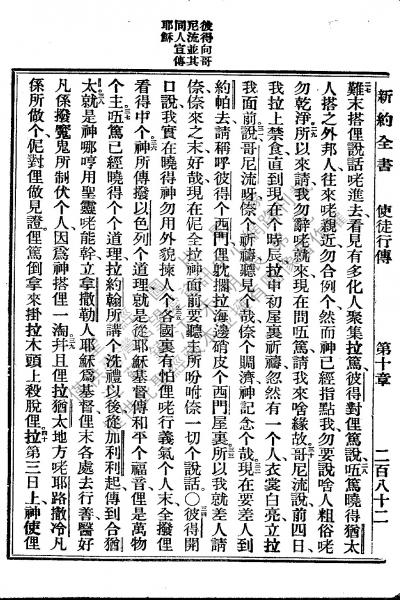 新約全書 使徒行傳 第十章 二百八十二
難末搭俚說話咾進去看見有多化人聚集拉篤彼得對俚篤說唔篤曉得猶太
人搭之外邦人往來咾親近勿合例个然而神已經指點我勿要說啥人粗俗咾
勿乾淨所以來請我勿辭咾就來現在問唔篤請我來啥緣故哥尼流說前四日
我拉上禁食直到現在个時辰拉申初屋裏祈禱忽然有一个人衣裳白亮立拉
我面前說哥尼流呀倷个祈禱聽見个哉倷个賙濟神記念个哉現在要差人到
約帕去請稱呼彼得个西門俚躭擱拉海邊硝皮个西門屋裏所以我就差人請
倷倷來之末好哉現在伲全拉神面前要聽主所吩咐倷一切个說話○彼得開
口說我實在曉得神勿用外貌揀人个各國裏有怕俚咾行義氣个人末全撥俚
看得中个神所傳撥以色列个道理就是從耶穌基督傳和平个福音俚是萬物
个主唔篤已經曉得个个道理拉約翰所講个洗禮以後從加利利起傳到合猶
太就是神哪哼用聖靈咾能幹立拿撒勒人耶穌爲基督俚末各處去行善醫好
凡係撥魔鬼所制伏个人因爲神搭俚一淘并且俚拉猶太地方咾耶路撒冷凡
係所做个伲對俚做見證俚篤倒拿來掛拉木頭上殺脫俚拉第三日上神使俚
彼得向哥
尼流並其
同人宣傳
耶穌